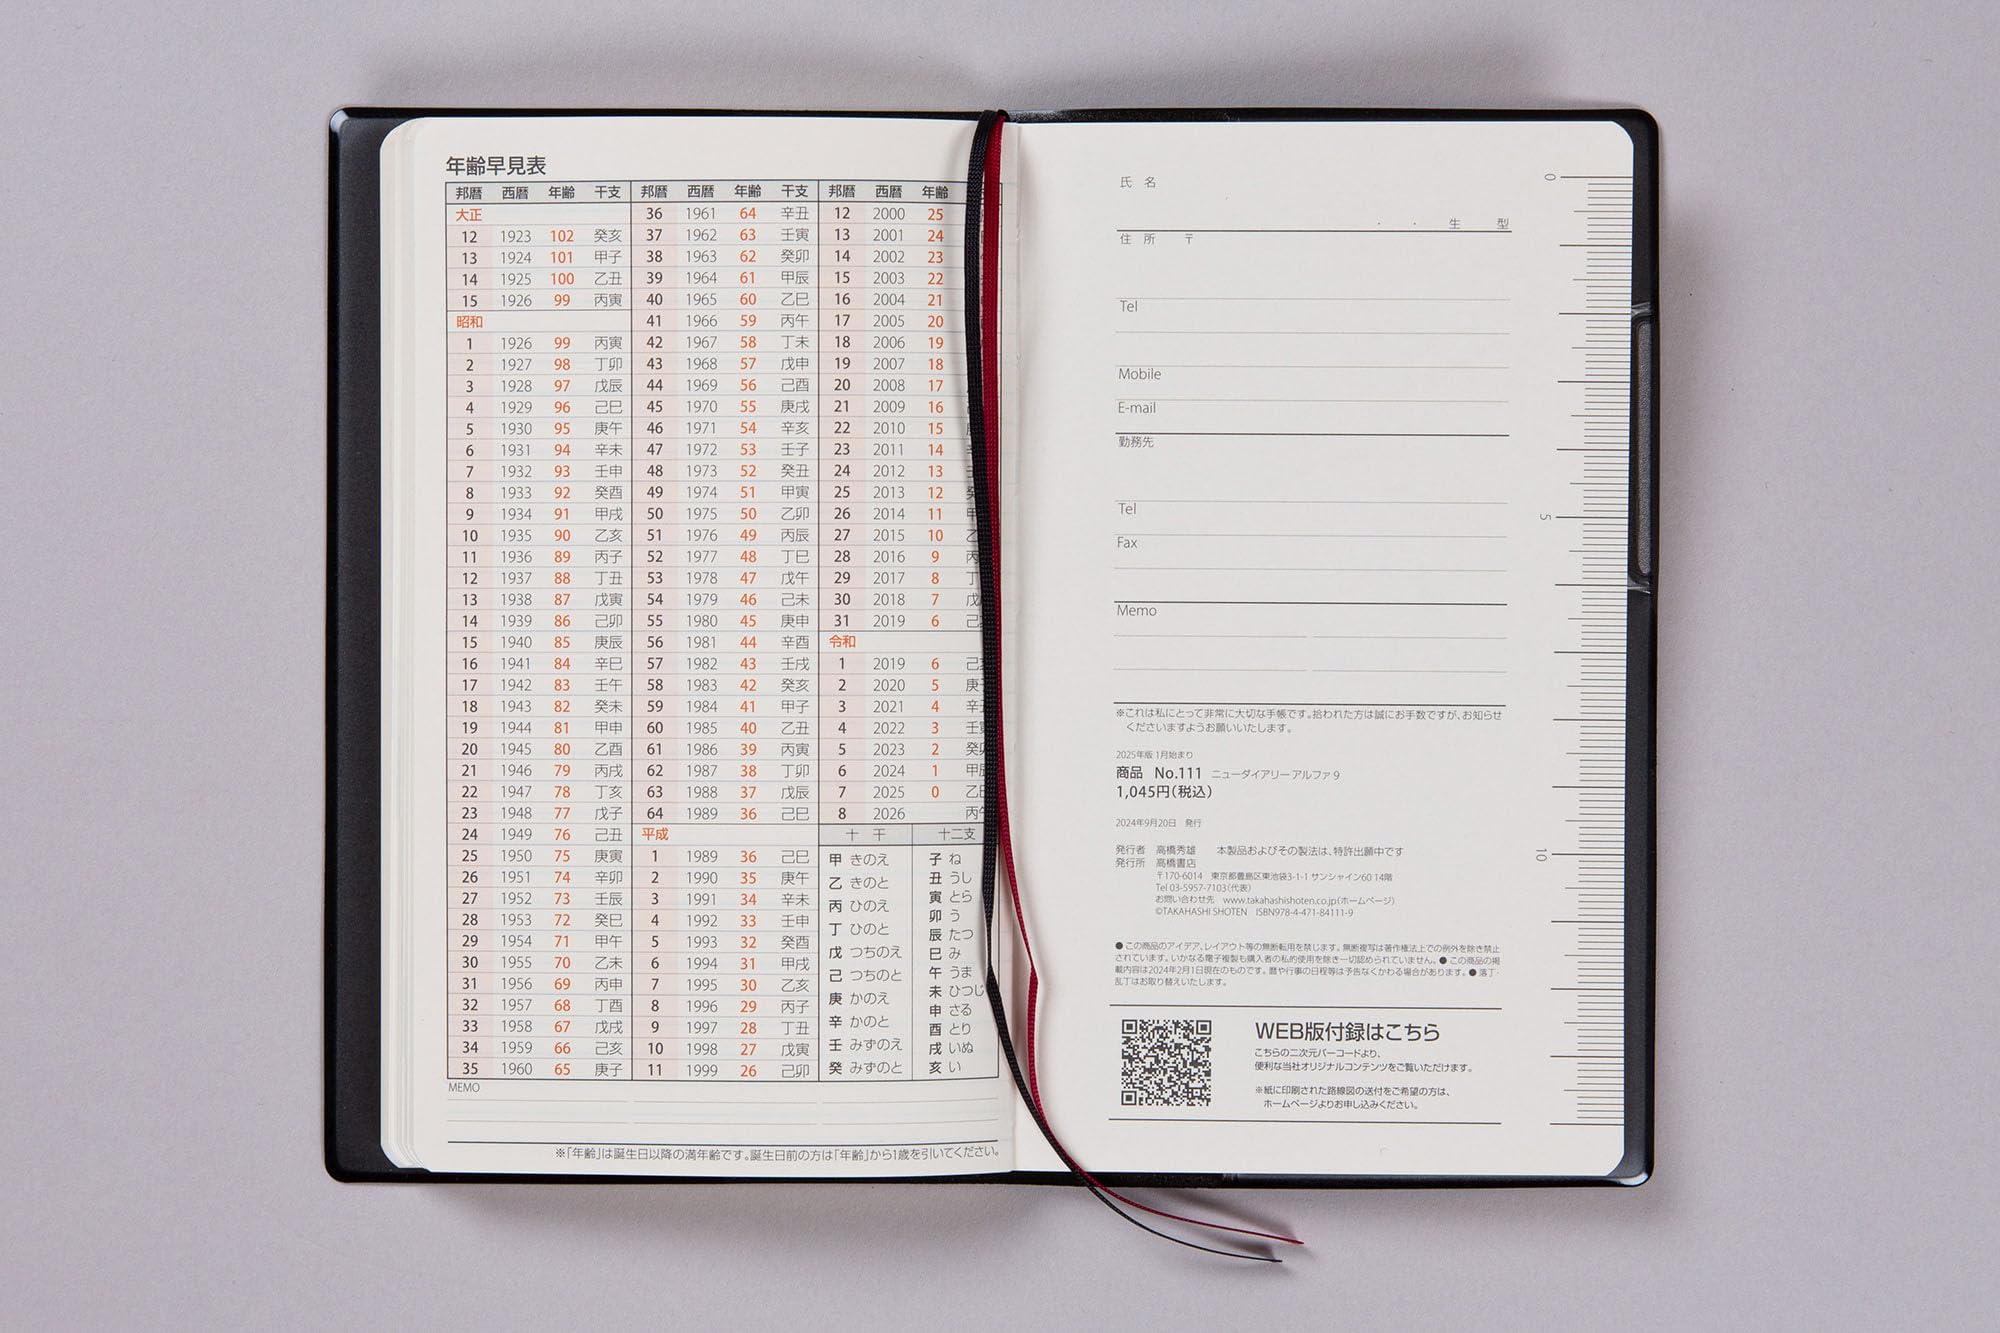 年齢早見表
邦暦 西暦 年齢 干支
大正
12 1923 102 癸亥
13 1924 101 甲子
14 1925 100 乙丑
15 1926 99 丙寅
昭和
1 1926 99 丙寅
2 1927 98 丁卯
3 1928 97 戊辰
4 1929 96 己巳
5 1930 95 庚午
6 1931 94 辛未
7 1932 93 壬申
8 1933 92 癸酉
9 1934 91 甲戌
10 1935 90 乙亥
11 1936 89 丙子
12 1937 88 丁丑
13 1938 87 戊寅
14 1939 86 己卯
15 1940 85 庚辰
16 1941 84 辛巳
17 1942 83 壬午
18 1943 82 癸未
19 1944 81 甲申
20 1945 80 乙酉
21 1946 79 丙戌
22 1947 78 丁亥
23 1948 77 戊子
24 1949 76 己丑
25 1950 75 庚寅
26 1951 74 辛卯
27 1952 73 壬辰
28 1953 72 癸巳
29 1954 71 甲午
30 1955 70 乙未
31 1956 69 丙申
32 1957 68 丁酉
33 1958 67 戊戌
34 1959 66 己亥
35 1960 65 庚子
邦暦 西暦 年齢 干支
36 1961 64 辛丑
37 1962 63 壬寅
38 1963 62 癸卯
39 1964 61 甲辰
40 1965 60 乙巳
41 1966 59 丙午
42 1967 58 丁未
43 1968 57 戊申
44 1969 56 己酉
45 1970 55 庚戌
46 1971 54 辛亥
47 1972 53 壬子
48 1973 52 癸丑
49 1974 51 甲寅
50 1975 50 乙卯
51 1976 49 丙辰
52 1977 48 丁巳
53 1978 47 戊午
54 1979 46 己未
55 1980 45 庚申
56 1981 44 辛酉
57 1982 43 壬戌
58 1983 42 癸亥
59 1984 41 甲子
60 1985 40 乙丑
61 1986 39 丙寅
62 1987 38 丁卯
63 1988 37 戊辰
64 1989 36 己巳
平成
1 1989 36 己巳
2 1990 35 庚午
3 1991 34 辛未
4 1992 33 壬申
5 1993 32 癸酉
6 1994 31 甲戌
7 1995 30 乙亥
8 1996 29 丙子
9 1997 28 丁丑
10 1998 27 戊寅
11 1999 26 己卯
邦暦 西暦 年齢
12 2000 25
13 2001 24
14 2002 23
15 2003 22
16 2004 21
17 2005 20
18 2006 19
19 2007 18
20 2008 17
21 2009 16
22 2010 15
23 2011 14
24 2012 13
25 2013 12
26 2014 11
27 2015 10 乙
28 2016 9 丙
29 2017 8 丁
30 2018 7 戊
31 2019 6 己
令和
1 2019 6 己
2 2020 5 庚
3 2021 4 辛
4 2022 3 壬
5 2023 2 癸卯
6 2024 1 甲
7 2025 0 乙
8 2026 丙午
十 干
甲 きのえ
乙 きのと
丙 ひのえ
丁 ひのと
戊 つちのえ
己 つちのと
庚 かのえ
辛 かのと
壬 みずのえ
癸 みずのと
十二支
子 ね
丑 うし
寅 とら
卯 う
辰 たつ
巳 み
午 うま
未 ひつじ
申 さる
酉 とり
戌 いぬ
亥 い
MEMO
※「年齢」は誕生日以降の満年齢です。誕生日前の方は「年齢」から1歳を引いてください。
氏 名
・ ・ 生 型
住 所 〒
Tel
Mobile
E-mail
勤務先
Tel
Fax
Memo
※これは私にとって非常に大切な手帳です。拾われた方は誠にお手数ですが、お知らせ
くださいますようお願いいたします。
2025年版 1月始まり
商品 No.111 ニューダイアリー アルファ 9
1,045円(税込)
2024年9月20日 発行
発行者 高橋秀雄 本製品およびその製法は、特許出願中です
発行所 高橋書店
〒170-6014 東京都豊島区東池袋3-1-1 サンシャイン60 14階
Tel 03-5957-7103(代表)
お問い合わせ先 www.takahashishoten.co.jp(ホームページ)
©TAKAHASHI SHOTEN ISBN978-4-471-84111-9
●この商品のアイデア、レイアウト等の無断転用を禁じます。無断複写は著作権法上での例外を除き禁止
されています。いかなる電子複製も購入者の私的使用を除き一切認められていません。●この商品の掲
載内容は2024年2月1日現在のものです。暦や行事の日程等は予告なくかわる場合があります。●落丁・
乱丁はお取り替えいたします。
WEB版付録はこちら
こちらの二次元バーコードより、
便利な当社オリジナルコンテンツをご覧いただけます。
※紙に印刷された路線図の送付をご希望の方は、
ホームページよりお申し込みください。
0
5
10